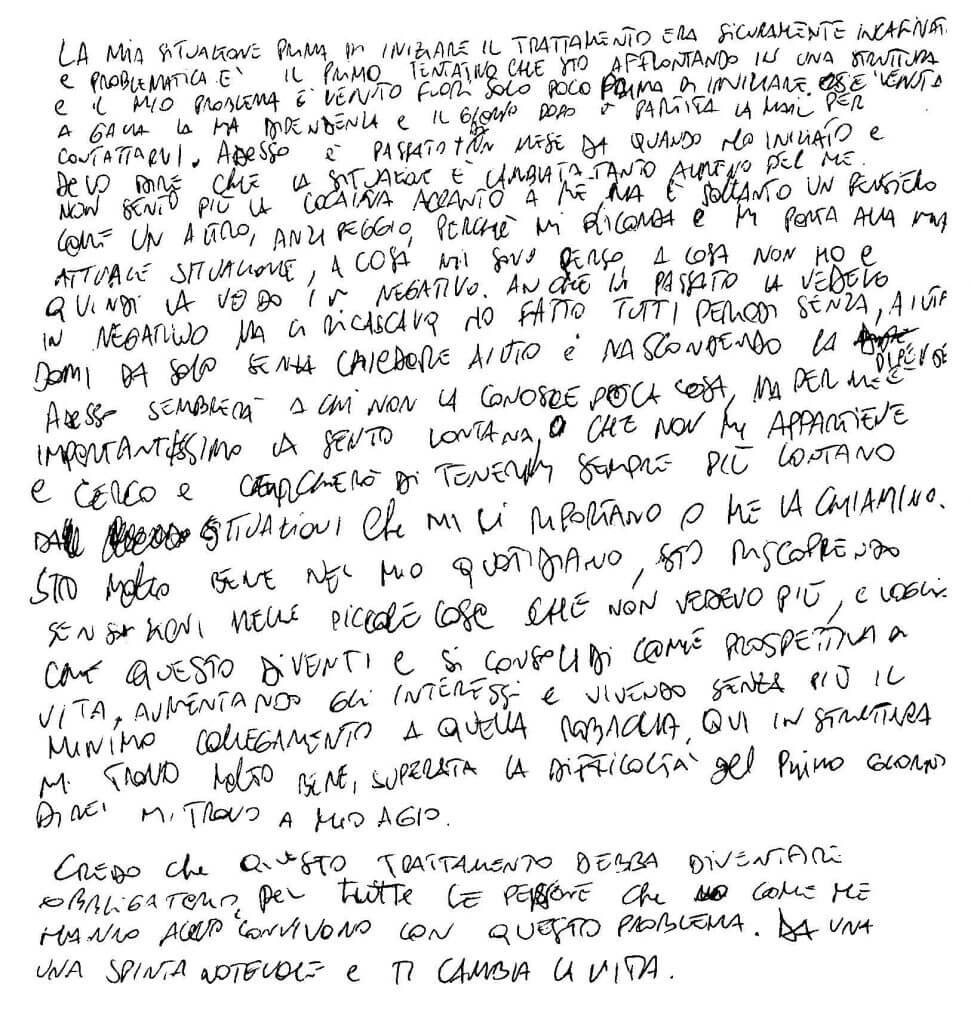 LA MIA SITUAZIONE PRIMA DI INIZIARE IL TRATTAMENTO ERA SICURAMENTE
E PROBLEMATICA E' IL PRIMO TENTATIVO CHE STO AFFRONTANDO IN UNA STRUTTURA
E IL MIO PROBLEMA È VENUTO FUORI SOLO POCO PRIMA DI INIZIARE. È VENUTA
A GALLA LA MIA DIPENDENZA E IL GIORNO DOPO È PARTITA LA MAIL PER
CONTATTARVI. ADESSO È PASSATO UN MESE DA QUANDO HO INIZIATO E
DEVO DIRE CHE LA SITUAZIONE È CAMBIATA TANTO ALMENO PER ME.
NON SENTO PIÙ LA COCAINA ACCANTO A ME, MA È SOLTANTO UN PENSIERO
COME UN ALTRO, ANZI PEGGIO, PERCHÈ MI RICORDA E MI PORTA ALLA MIA
ATTUALE SITUAZIONE, A COSA MI SONO PERSO A COSA NON HO E
QUINDI LA VEDO IN NEGATIVO. ANCHE IN PASSATO LA VEDEVO
IN NEGATIVO MA CI RICASCAVO HO FATTO TUTTI PERIODI SENZA, AIUTAN
DOMI DA SOLO SENZA CHIEDERE AIUTO E NASCONDENDO LA
ADESSO SEMBRERÀ A CHI NON LA CONOSCE POCA COSA, MA PER ME È
IMPORTANTISSIMO LA SENTO LONTANA, O CHE NON MI APPARTIENE
E CERCO E CERCHERÒ DI TENERMI SEMPRE PIÙ LONTANO
DA SITUAZIONI CHE MI CI RIPORTANO O ME LA CHIAMINO.
STO MOLTO BENE NEL MIO QUOTIDIANO, STO RISCOPRENDO
SENSAZIONI NELLE PICCOLE COSE CHE NON VEDEVO PIÙ, E VOGLIO
CHE QUESTO DIVENTI E SI CONSOLIDI COME PROSPETTIVA DI
VITA, AUMENTANDO GLI INTERESSI E VIVENDO SENZA PIÙ IL
MINIMO COLLEGAMENTO A QUELLA ROBACCIA, QUI IN STRUTTURA
MI TROVO MOLTO BENE, SUPERATA LA DIFFICOLTÀ del PRIMO GIORNO
DIREI MI TROVO A MIO AGIO.
CREDO che QUESTO TRATTAMENTO DEBBA DIVENTARE
OBBLIGATORIO per tutte LE PERSONE che COME ME
HANNO CONVIVONO CON QUESTO PROBLEMA. DA UNA
UNA SPINTA NOTEVOLE e TI CAMBIA LA VITA.